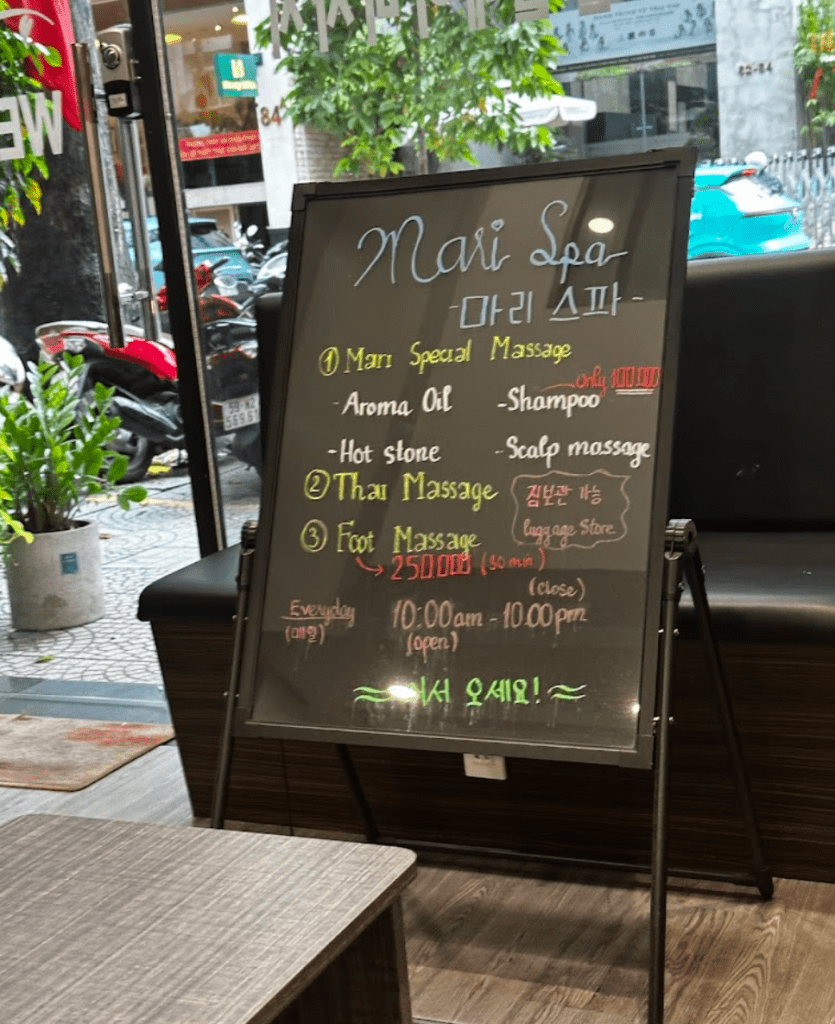 Mari Spa
-마리 스파-
① Mari Special Massage
only 100.000
-Aroma Oil -Shampoo
-Hot stone -Scalp massage
② Thai Massage
짐보관 가능
luggage Store
③ Foot Massage
250.000 (30 min)
(close)
Everyday 10:00am - 10:00pm
(매일) (open)
≈ 어서 오세요! ≈
WE
84
82-84